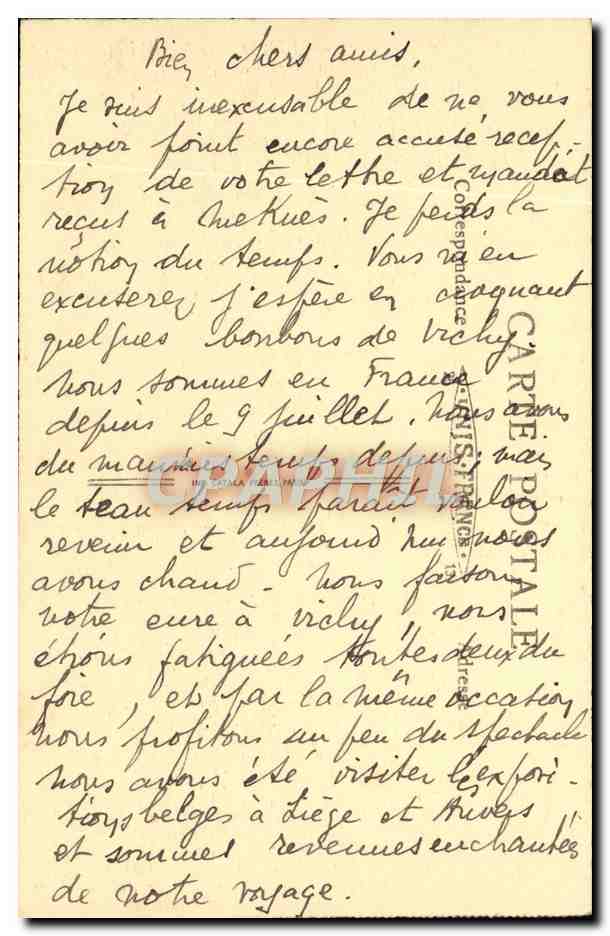 Bien chers amis,
Je suis inexcusable de ne vous
avoir point encore accusé récep-
tion de votre lettre et mandat
reçus à Meknès. Je perds la
notion du temps. Vous m'en
excuserez j'espère en croquant
quelques bonbons de Vichy.
Nous sommes en France
depuis le 9 juillet. Nous avons
du mauvais temps depuis; mais
le beau temps paraît vouloir
revenir et aujourd'hui nous
avons chaud - Nous faisons
notre cure à Vichy, nous
étions fatiguées toutes deux du
foie, et par la même occasion
nous profitons un peu du spectacle
nous avons été visiter les exposi-
tions belges à Liège et Anvers,
et sommes revenues enchantées
de notre voyage.
CARTE POSTALE
Correspondance
Adresse
UNIS FRANCE
IMP. CATALA FRÈRES, PARIS
CPARHAMA